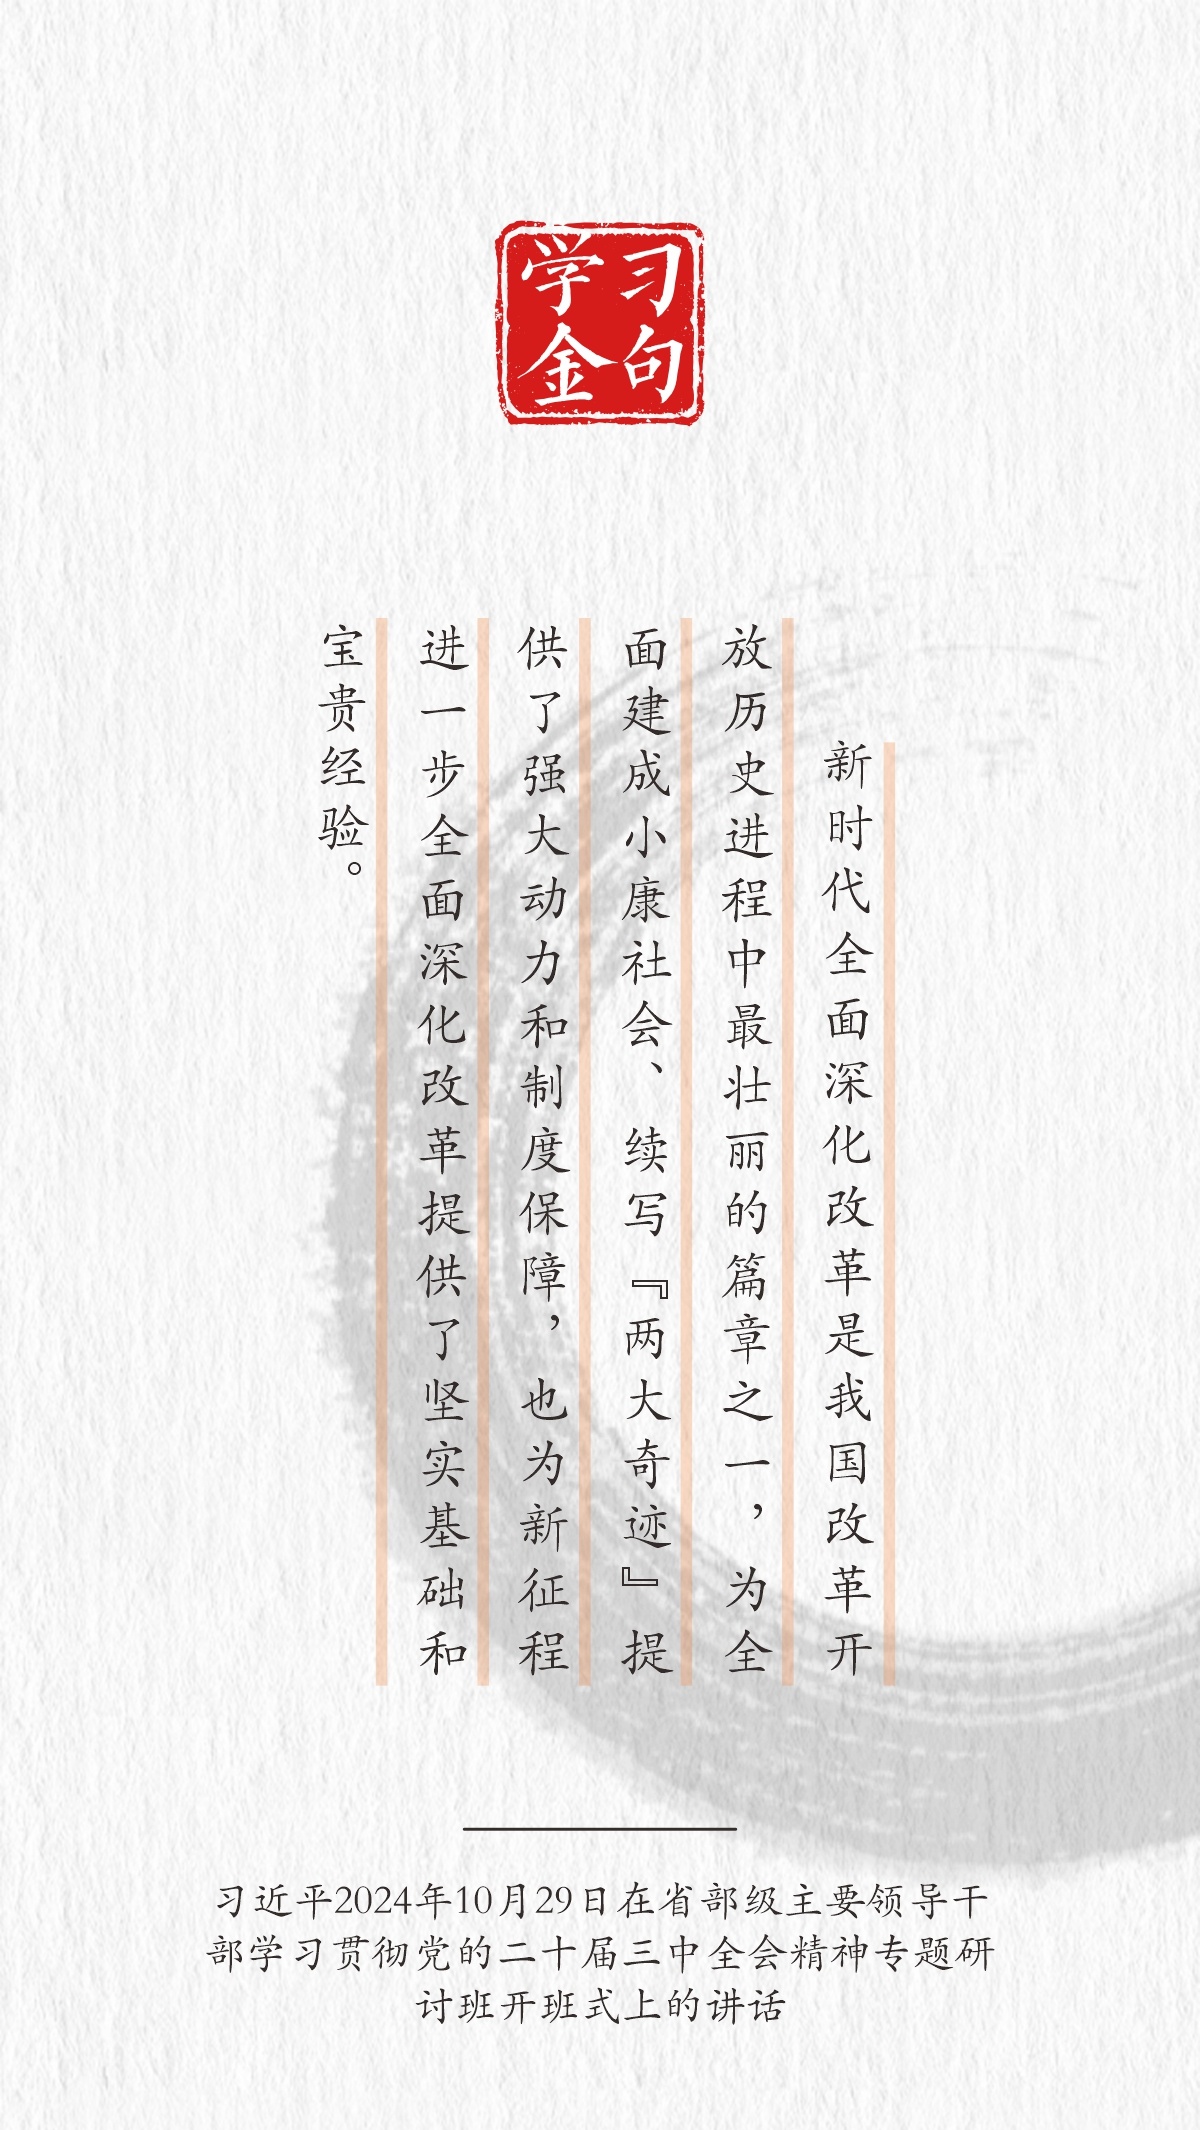 学习
金句
新时代全面深化改革是我国改革开
放历史进程中最壮丽的篇章之一，为全
面建成小康社会、续写『两大奇迹』提
供了强大动力和制度保障，也为新征程
进一步全面深化改革提供了坚实基础和
宝贵经验。
习近平2024年10月29日在省部级主要领导干
部学习贯彻党的二十届三中全会精神专题研
讨班开班式上的讲话